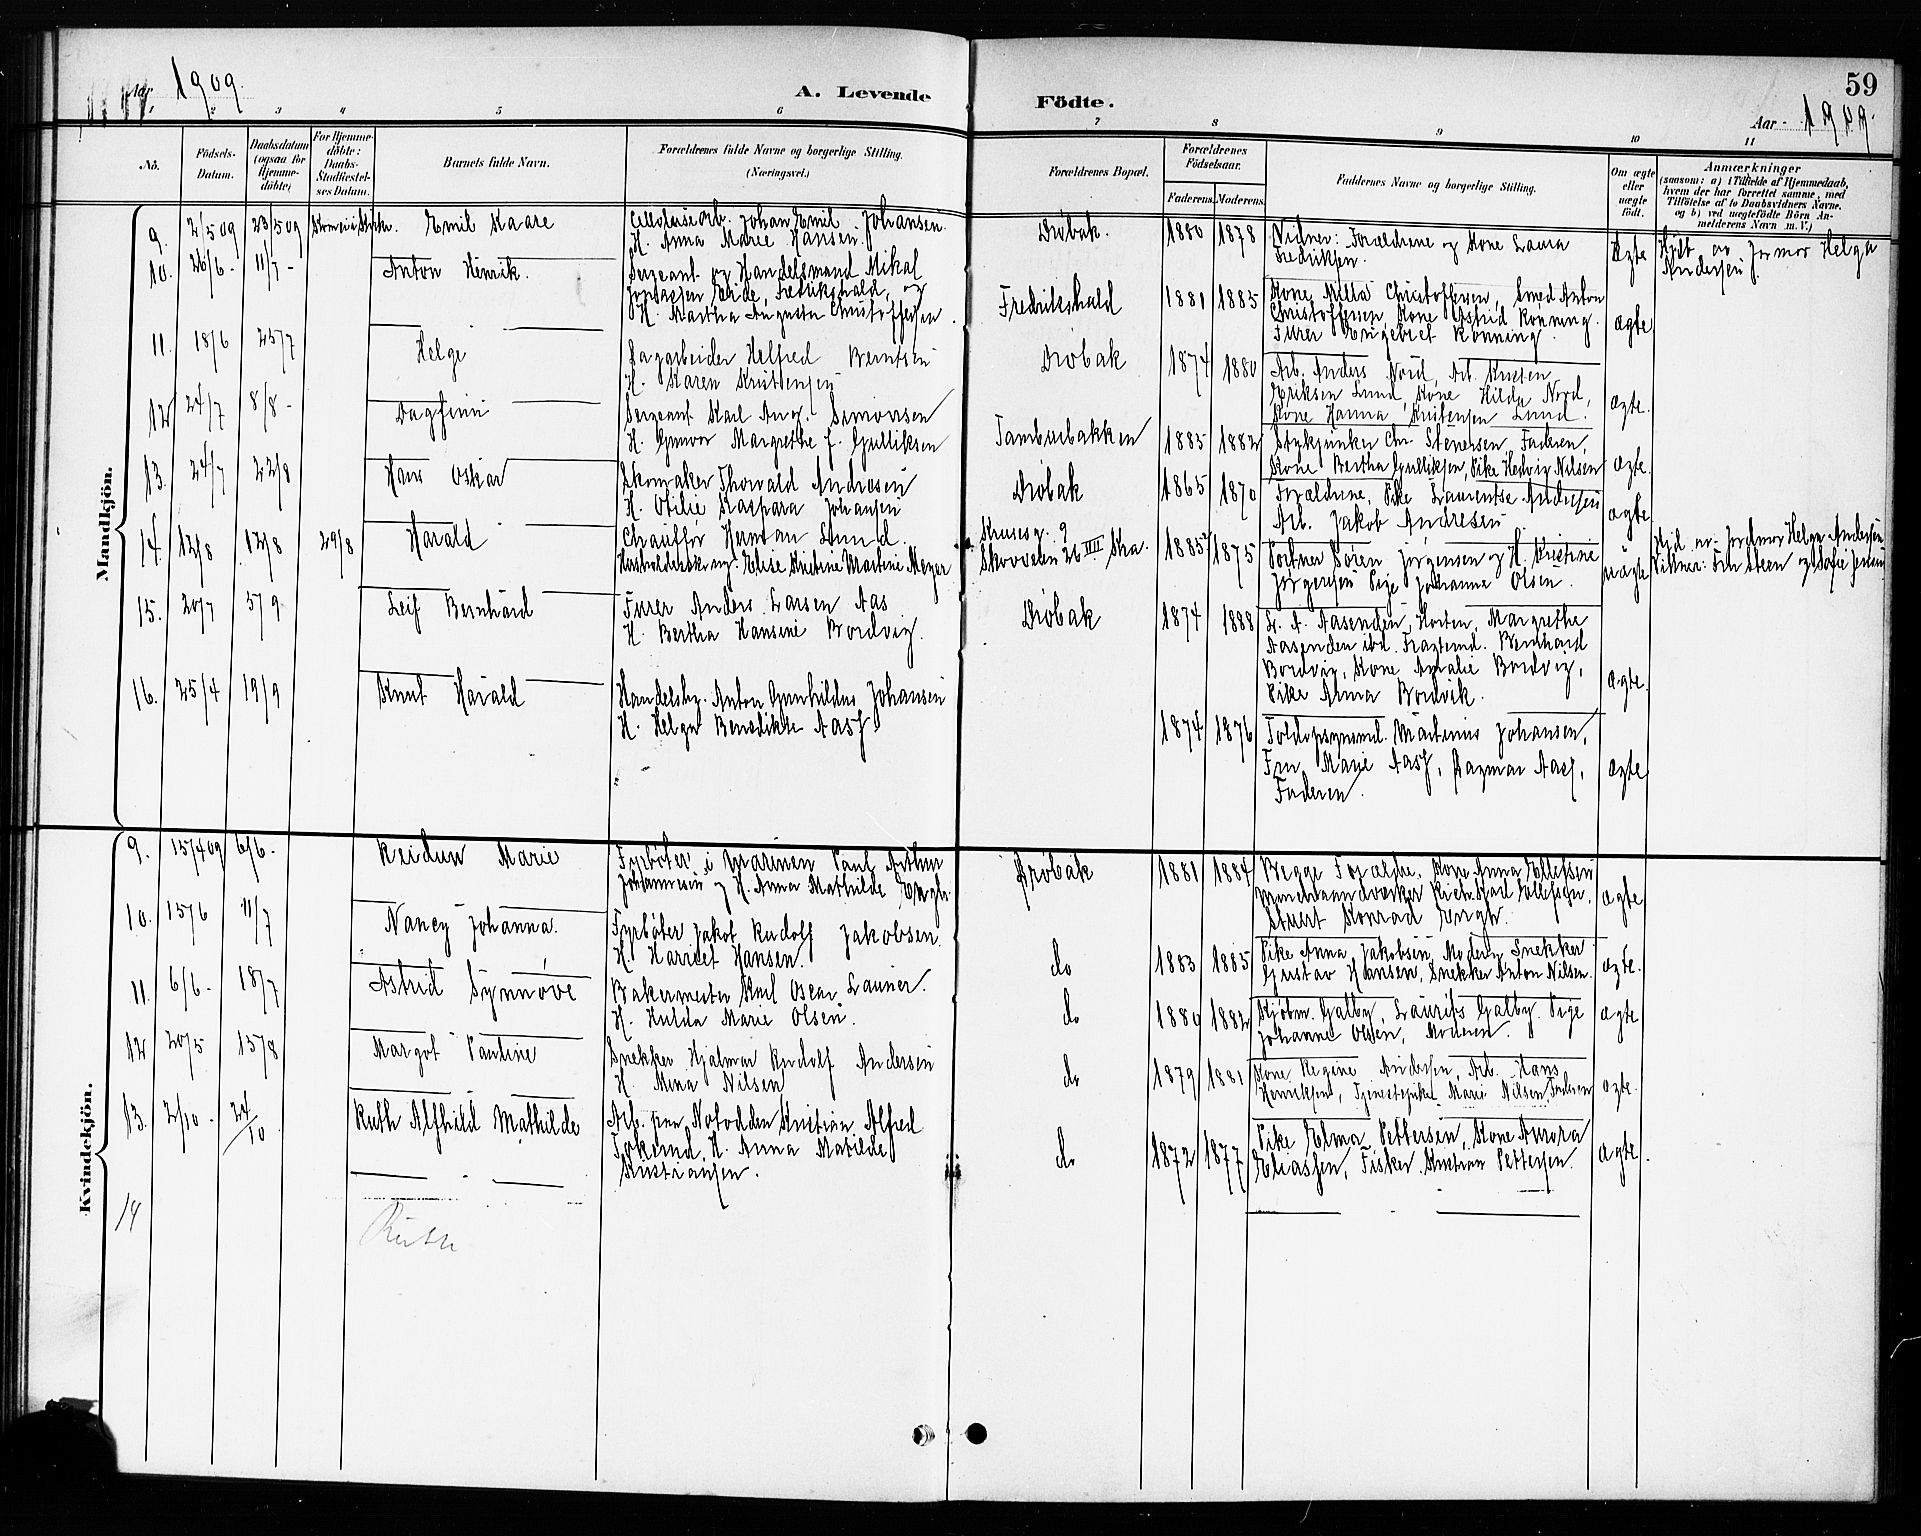 Aar 1909.
A. Levende
Födte.
59
Aar 1909.
1 2 3 4 5 6 7 8 9 10 11
No.
Födsels-
Datum.
Daabsdatum
(ogsaa for
Hjemme-
döbte)
For Hjemme-
döbte:
Daabs-
Stadfæstel-
ses Datum.
Barnets fulde Navn.
Forældrenes fulde Navne og borgerlige Stilling.
(Næringsvei.)
Forældrenes Bopæl.
Forældrenes
Födselsaar.
Faderens. Moderens.
Faddernes Navne og borgerlige Stilling.
Om ægte
eller
uægte
født.
Anmærkninger
(saasom: a) i Tilfælde af Hjemmedaab,
hvem der har forrettet samme, med
Tilföielse af to Daabsvidners Navne.
og b) ved uægtefödte Börn An-
melderens Navn m. V.)
Mandkjön.
9. 2/5 09 23/5 09 Emil Kaare
Johan Emil Johansen.
H. Anna Marie Hansen.
Drøbak. 1880 1878
Vidner: Forældrene og Kone Laura
Fredriksen.
Ægte
Hjdt av Jormor Helga
Andersen
10. 26/6 - 11/7 - Anton Henrik.
Sergeant og Handelsmand Mikal
Eide, Fredrikshald, og
H. Martha Augusta Christoffersen.
Fredrikshald 1881 1885
Kone Milla Christoffersen, Smed Anton
Christoffersen, Kone Astrid Rønning.
Furer Engebret Rønning.
ægte
11. 18/6 25/7 Helge
Dagarbeider Halfred Berntsen
H. Karen Kristensen
Drøbak 1874 1880
Arb. Anders Nord, Arb. Kristen
Eriksen Lund, Kone Hilda Nord,
Kone Hanna Kristensen Lund.
ægte.
12 24/7 8/8 - Dagfinn
Sergeant Karl Aug. Simonsen
H. Gunvor Margrethe f. Gulliksen
Tamburbakken 1885 1882
Stykjunker Chr. Stenersen, Faderen,
Kone Bertha Gulliksen, Pike Hedvig Nilsen
ægte.
13. 24/7 22/8 Hans Oskar
Skomaker Thorvald Andresen
H. Otilie Kaspara Johansen
Drøbak 1865 1870
Forældrene, Pike Laurentse Andresen
Arb. Jakob Andresen
ægte
14. 12/8 12/8 29/8 Harald
Chauffør Herman Lund.
Elise Kristine Martine Meyer
Skovveien 26 III Kra. 1885 1875
Portner Søren Jørgensen og H. Kristine
Jørgensen Pige Johanna Olsen.
uægte
Hjd. av Jordmor Helga Andersen
Vidner: Frk Steen og Sofie Jensen
15. 20/7 5/9 Leif Bernhard
Furer Anders Larsen Aas
H. Bertha Hansine Bordvig.
Drøbak 1874 1888
L. A. Aasenden, Horten, Margrethe
Aasenden ibd. Fragtemd. Bernhard
Bordvig, Kone Amalie Bordvig,
Pike Anna Bordvik.
ægte.
16. 25/4 19/9 Knut Harald
Handelsbg. Anton Gunhildus Johansen
H. Helga Benedikte Aass.
1874 1876
Toldopsynsmd. Martinus Johansen,
Fru Marie Aass, Dagmar Aass,
Faderen.
ægte
Kvindekjön.
9. 15/4 09 6/6 - Reidun Marie
Fyrbøter i Marinen Paul Arthur
Johannesen og H. Anna Mathilde Engh.
Drøbak 1881 1884
Begge Forældre, Kone Anna Ellefsen
Minehaandverker Richard Ellefsen,
Stuert Konrad Engh.
ægte
10. 15/6 11/7 Nancy Johanna.
Fyrbøter Jakob Rudolf Jakobsen.
H. Harriet Hansen.
do 1883 1885
Pike Anna Jakobsen, Modern, Snekker
Gustav Hansen, Snekker Anton Nilsen.
ægte.
11. 6/6 - 18/7 Astrid Synnøve
Bakermester Karl Oscar Launer.
H. Hulda Marie Olsen.
do 1880 1882
Kjøbm. Galby, Laurits Galby. Pige
Johanne Olsen, Moderen.
ægte
12 20/5 15/8 Margot Pauline
Snekker Hjalmar Rudolf Andersen
H. Mina Nilsen
do 1879 1881
Kone Regine Andersen, Arb. Hans
Henriksen, Tjenestepike Marie Nilsen, Faderen
ægte.
13. 2/10 - 24/10 Ruth Alfhild Mathilde
Arb. paa Notodden Kristian Alfred
H. Anna Matilde
Kristiansen.
do 1872 1877
Pike Elma Pettersen, Kone Aurora
Eliassen, Fisker Kristian Pettersen.
ægte.
14
Ruth